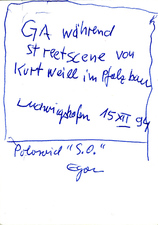 GA während
streetscene von
Kurt Weill im Pfalzbau
Ludwigshafen 15 XII 94
Polaroid "S.O."
Egon